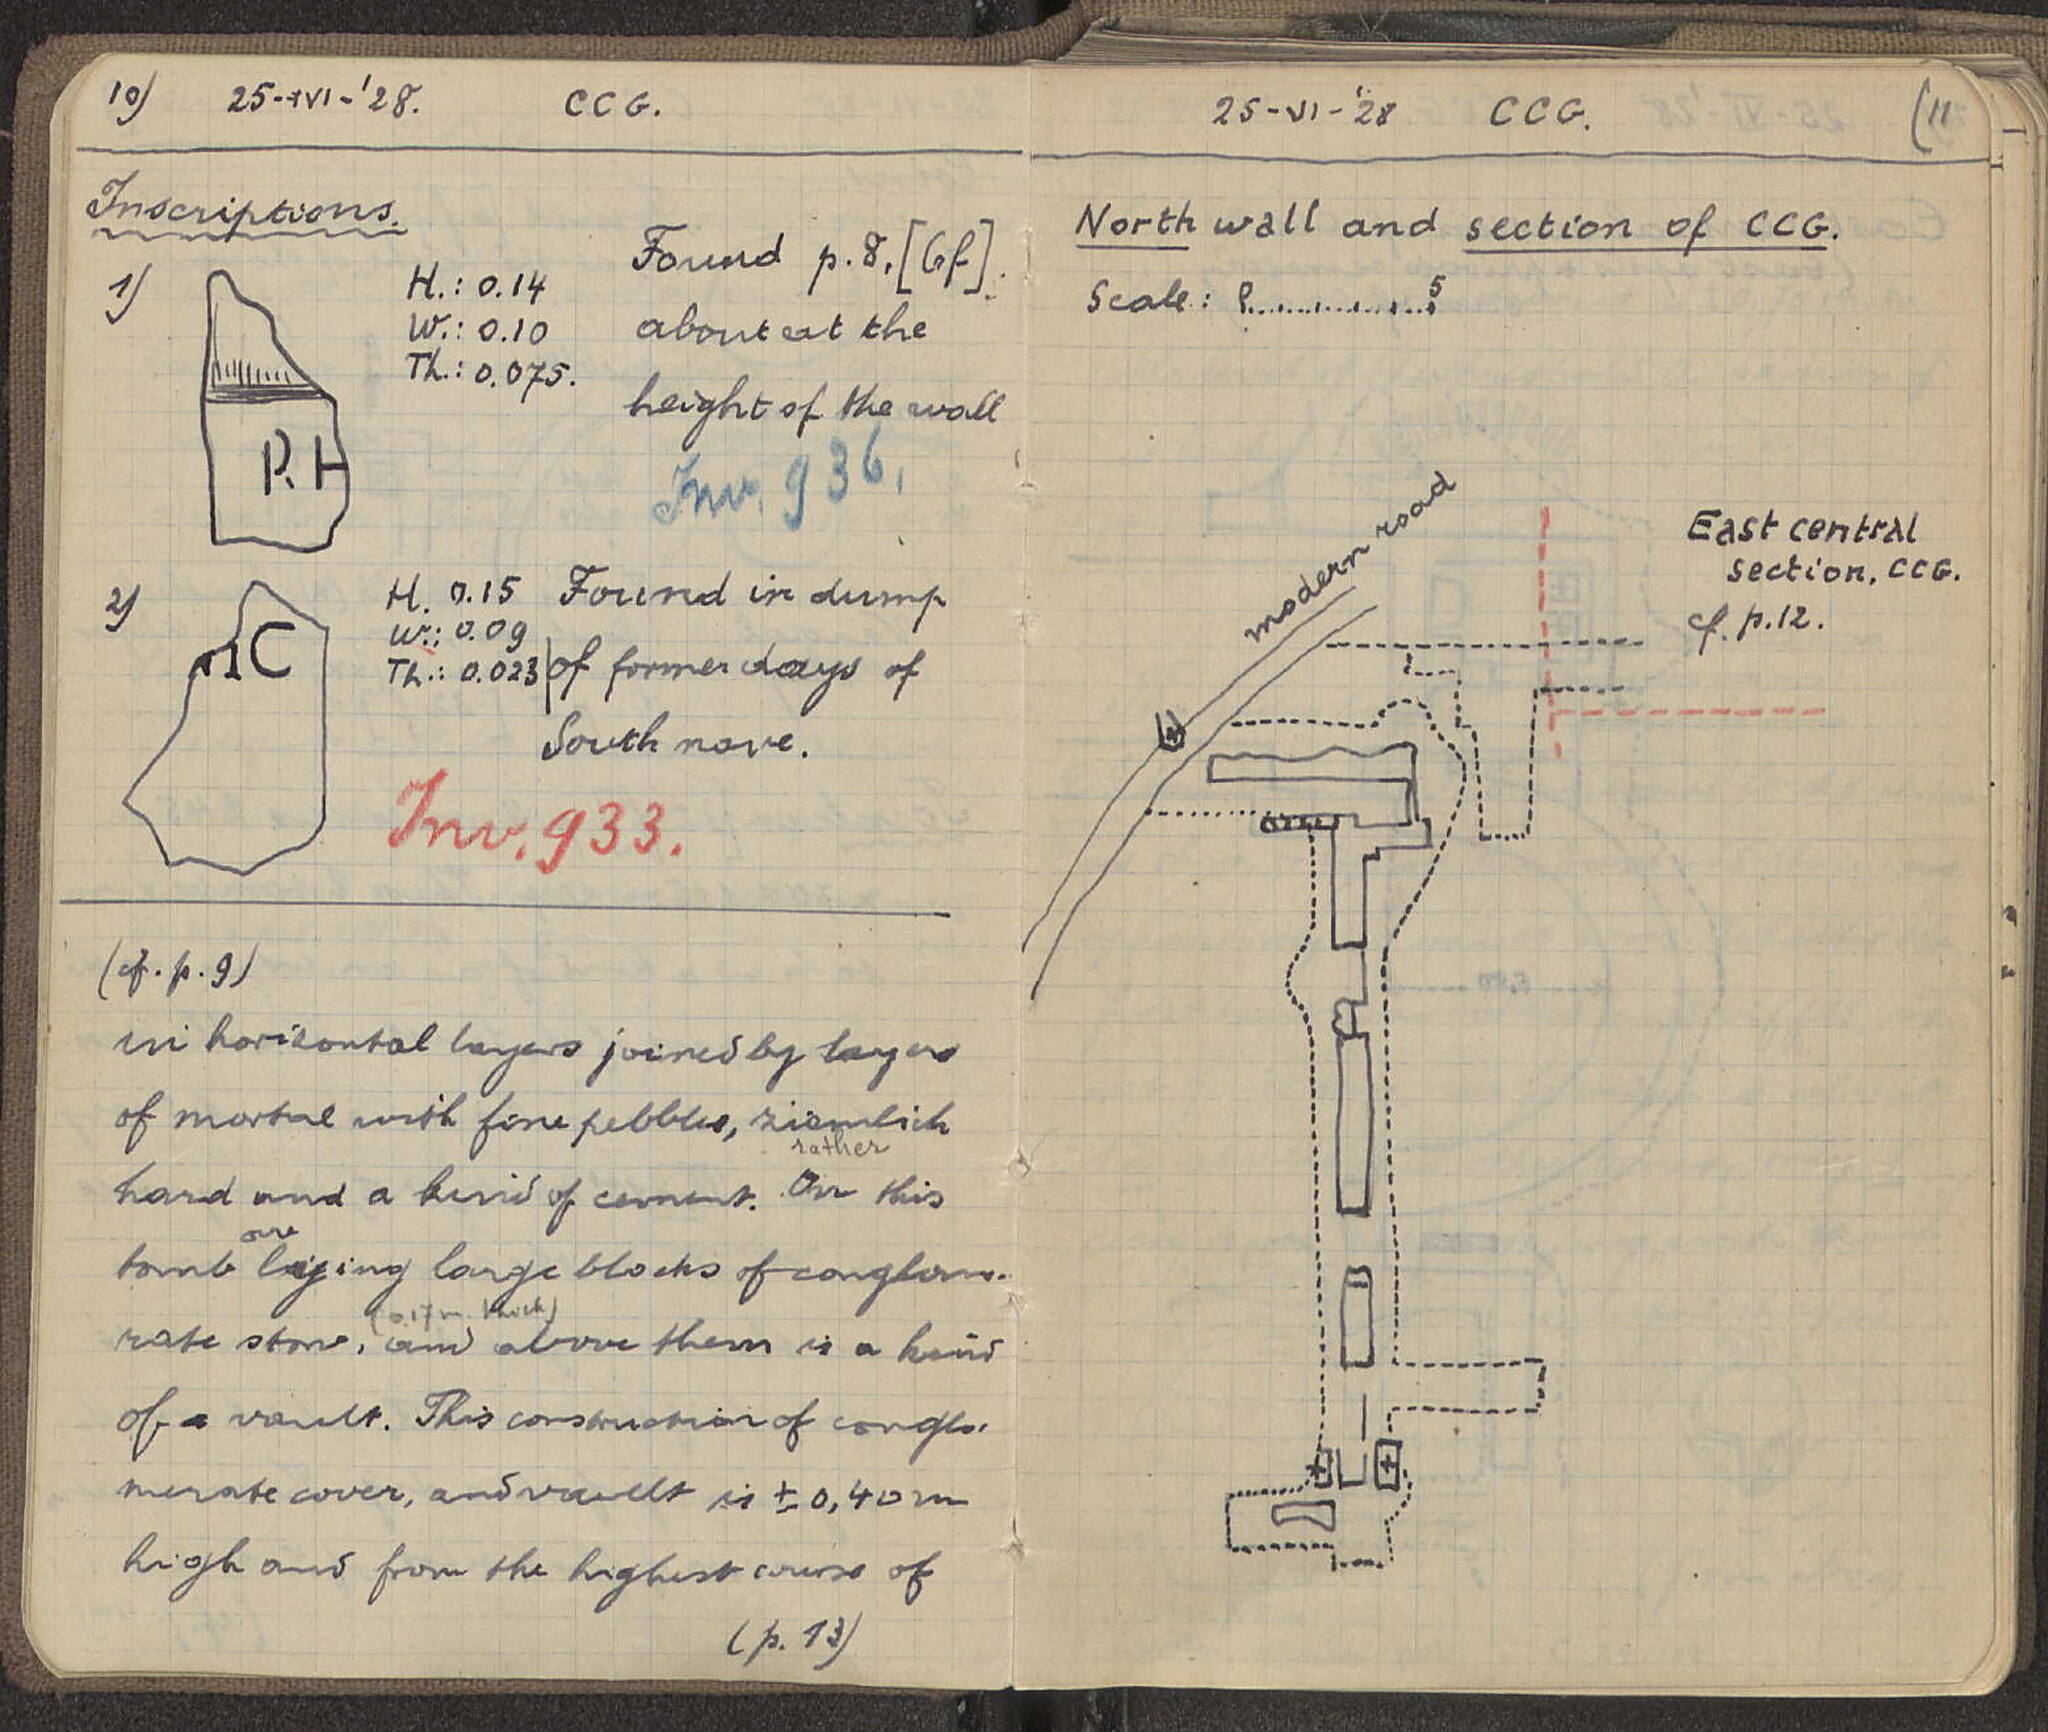 10) 25-VI-'28. CCG.
Inscriptions.
1)
H.: 0.14
W.: 0.10
Th.: 0.075.
Found p. 8, [Gf].
about at the
height of the wall
Inv. 936.
P. H
2)
H. 0.15
W.: 0.09
Th.: 0.023
Found in dump
of former days of
South nave.
IC
Inv. 933.
(cf. p. 9)
in horizontal layers joined by layers
of mortal with fine pebbles, ziemlich
rather
hard and a kind of cement. On this
are
tomb laying large blocks of conglome-
(0.17 m. thick)
rate stone, and above them is a kind
of a vault. This construction of conglo-
merate cover, and vault is ± 0,40 m
high and from the highest course of
(p. 13)
25-VI-'28 CCG. (11
North wall and section of CCG.
Scale: 0 5
modern road
East central
section, CCG.
cf. p. 12.